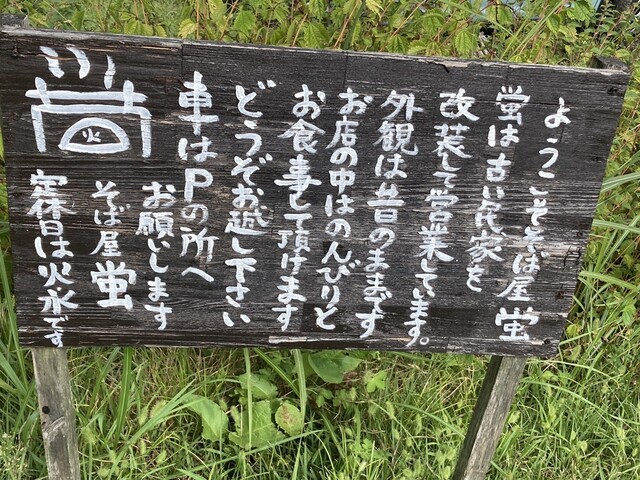 ようこそそば屋 蛍
蛍は古い民家を
改装して営業しています。
外観は昔のままです
お店の中はのんびりと
お食事して頂けます
どうぞお越し下さい
車はPの所へ
お願いします
そば屋 蛍
定休日は火水です
火